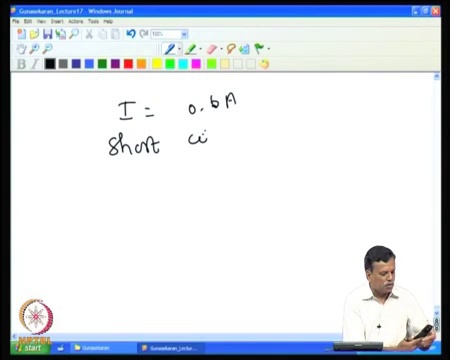 Gunasekaran_Lecture17 - Windows Journal
File Edit View Insert Actions Tools Help
100%
B I
I = 0.6A
Short ci
NPTEL
start Gunasekaran Gunasekaran_Lec...